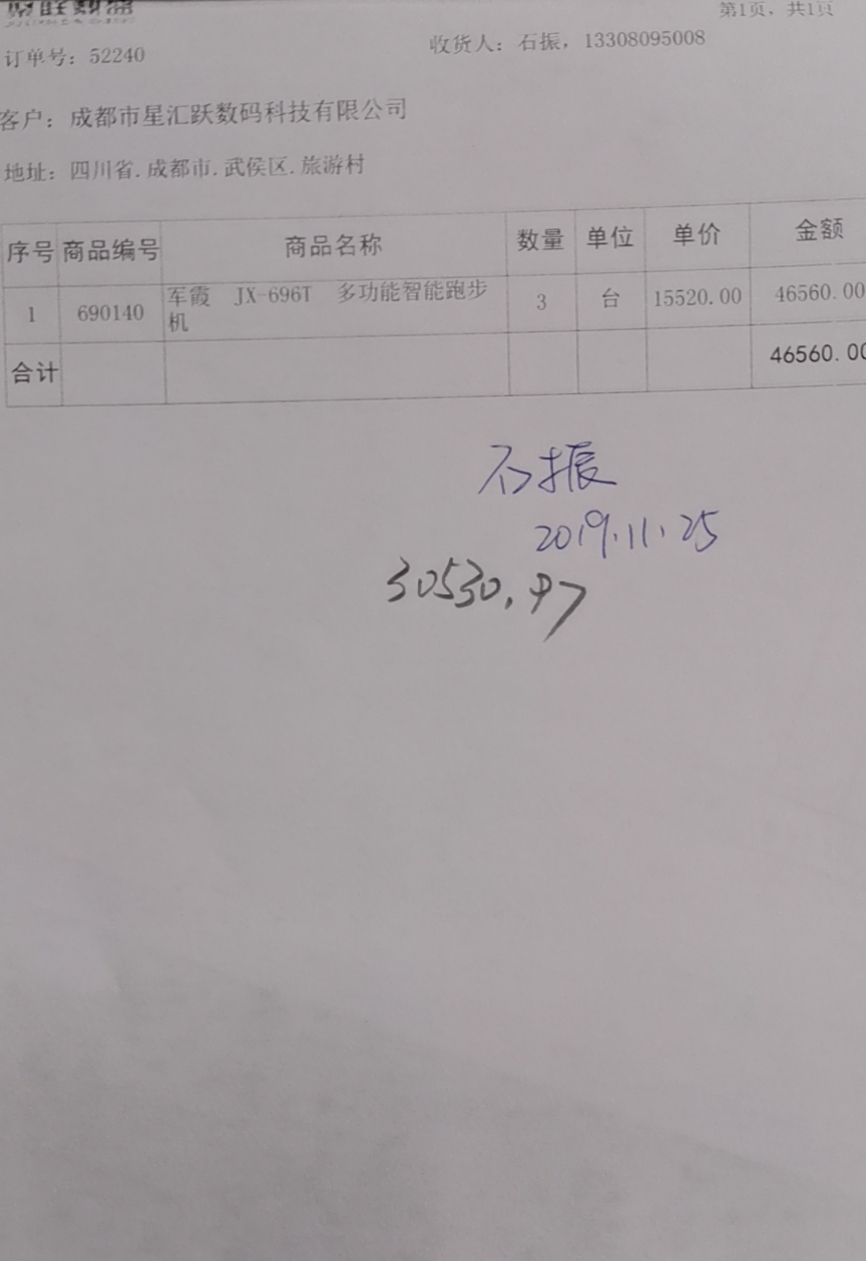 第1页, 共1页
订单号: 52240 收货人: 石振, 13308095008
客户: 成都市星汇跃数码科技有限公司
地址: 四川省.成都市.武侯区.旅游村
序号 商品编号 商品名称 数量 单位 单价 金额
1 690140 军霞 JX-696T 多功能智能跑步 3 台 15520.00 46560.00
机
合计 46560.00
石振
2019.11.25
30530.97